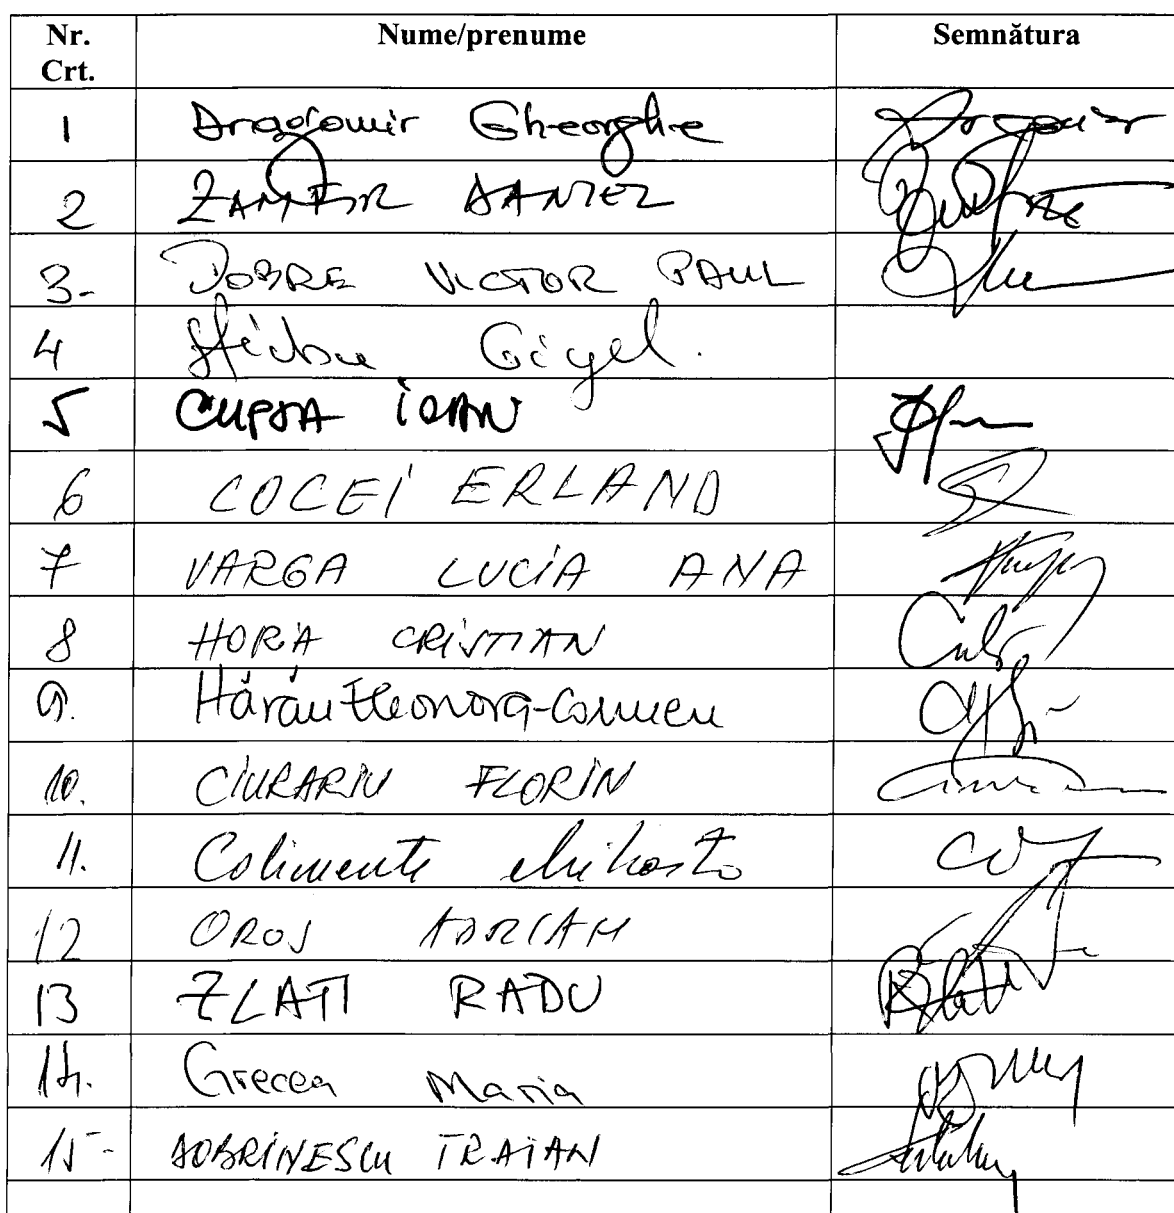 Nr. Crt. Nume/prenume Semnătura
1 Dragomir Gheorghe
2 ZAMFIR DANIEL
3- DOBRE VICTOR PAUL
4 Știrbu Gigel.
5 CUPȘA IOAN
6 COCEI ERLAND
7 VARGA LUCIA ANA
8 HORA CRISTIAN
9. Hărău Eleonora-Carmen
10. CIURARIU FLORIN
11. Calimente Mihăiță
12 OROS ADRIAN
13 ZLATI RADU
14. Grecea Maria
15- DOBRINESCU TRAIAN